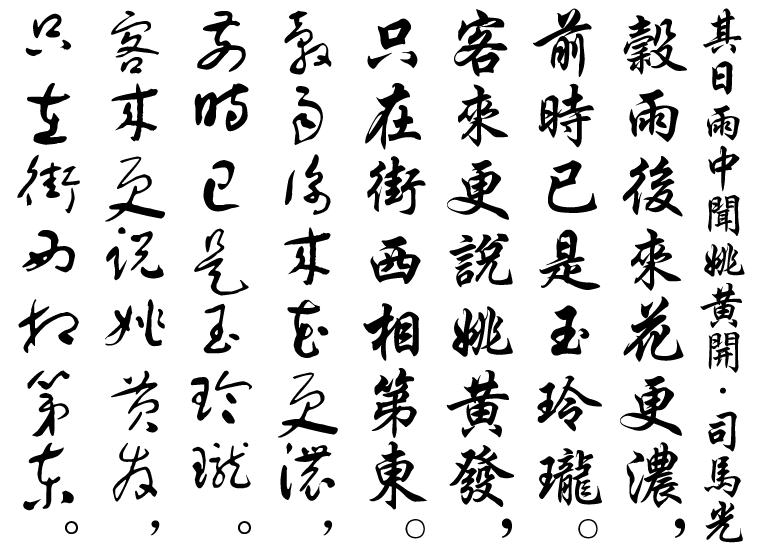 其日雨中聞姚黃開·司馬光
穀雨後來花更濃，
前時已是玉玲瓏。
客來更說姚黃發，
只在街西相第東。
穀雨後來花更濃，
前時已是玉玲瓏。
客來更說姚黃發，
只在街西相第東。